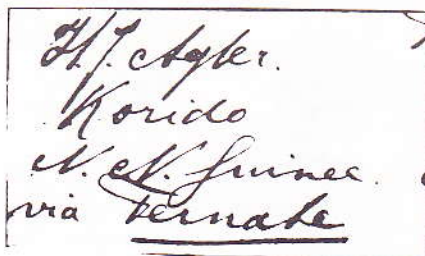 H.J. Agter.
Korido
N. N. Guinee.
via Ternate